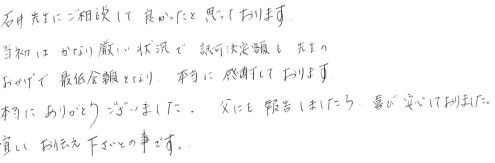 石井先生にご相談して良かったと思っております。
当初はかなり厳しい状況で認可決定額も先生の
おかげで最低金額となり、本当に感謝しております
本当にありがとうございました。父にも報告しましたら、喜び安心しておりました。
宜しくお伝え下さいとの事です。